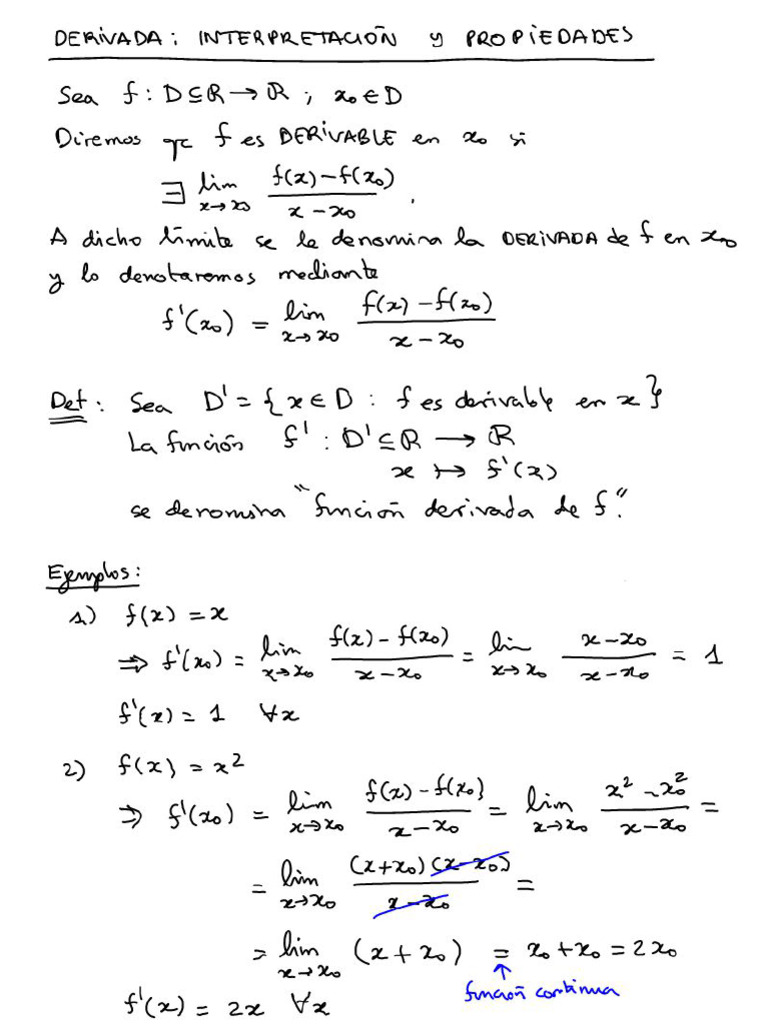 DERIVADA: INTERPRETACIÓN y PROPIEDADES
Sea f: D⊆ℝ → ℝ ; x₀ ∈ D
Diremos qe f es DERIVABLE en x₀ si
∃ lim_{x→x₀} (f(x)−f(x₀))/(x−x₀).
A dicho límite se le denomina la DERIVADA de f en x₀
y lo denotaremos mediante
f'(x₀) = lim_{x→x₀} (f(x)−f(x₀))/(x−x₀)
Def: Sea D' = {x ∈ D : f es derivable en x}
La función f' : D'⊆ℝ → ℝ
x ↦ f'(x)
se denomina "función derivada de f".
Ejemplos:
1) f(x) = x
⇒ f'(x₀) = lim_{x→x₀} (f(x)−f(x₀))/(x−x₀) = lim_{x→x₀} (x−x₀)/(x−x₀) = 1
f'(x) = 1 ∀x
2) f(x) = x²
⇒ f'(x₀) = lim_{x→x₀} (f(x)−f(x₀))/(x−x₀) = lim_{x→x₀} (x²−x₀²)/(x−x₀) =
= lim_{x→x₀} (x+x₀)(x−x₀)/(x−x₀) =
= lim_{x→x₀} (x+x₀) = x₀+x₀ = 2x₀
↑
función continua
f'(x) = 2x ∀x